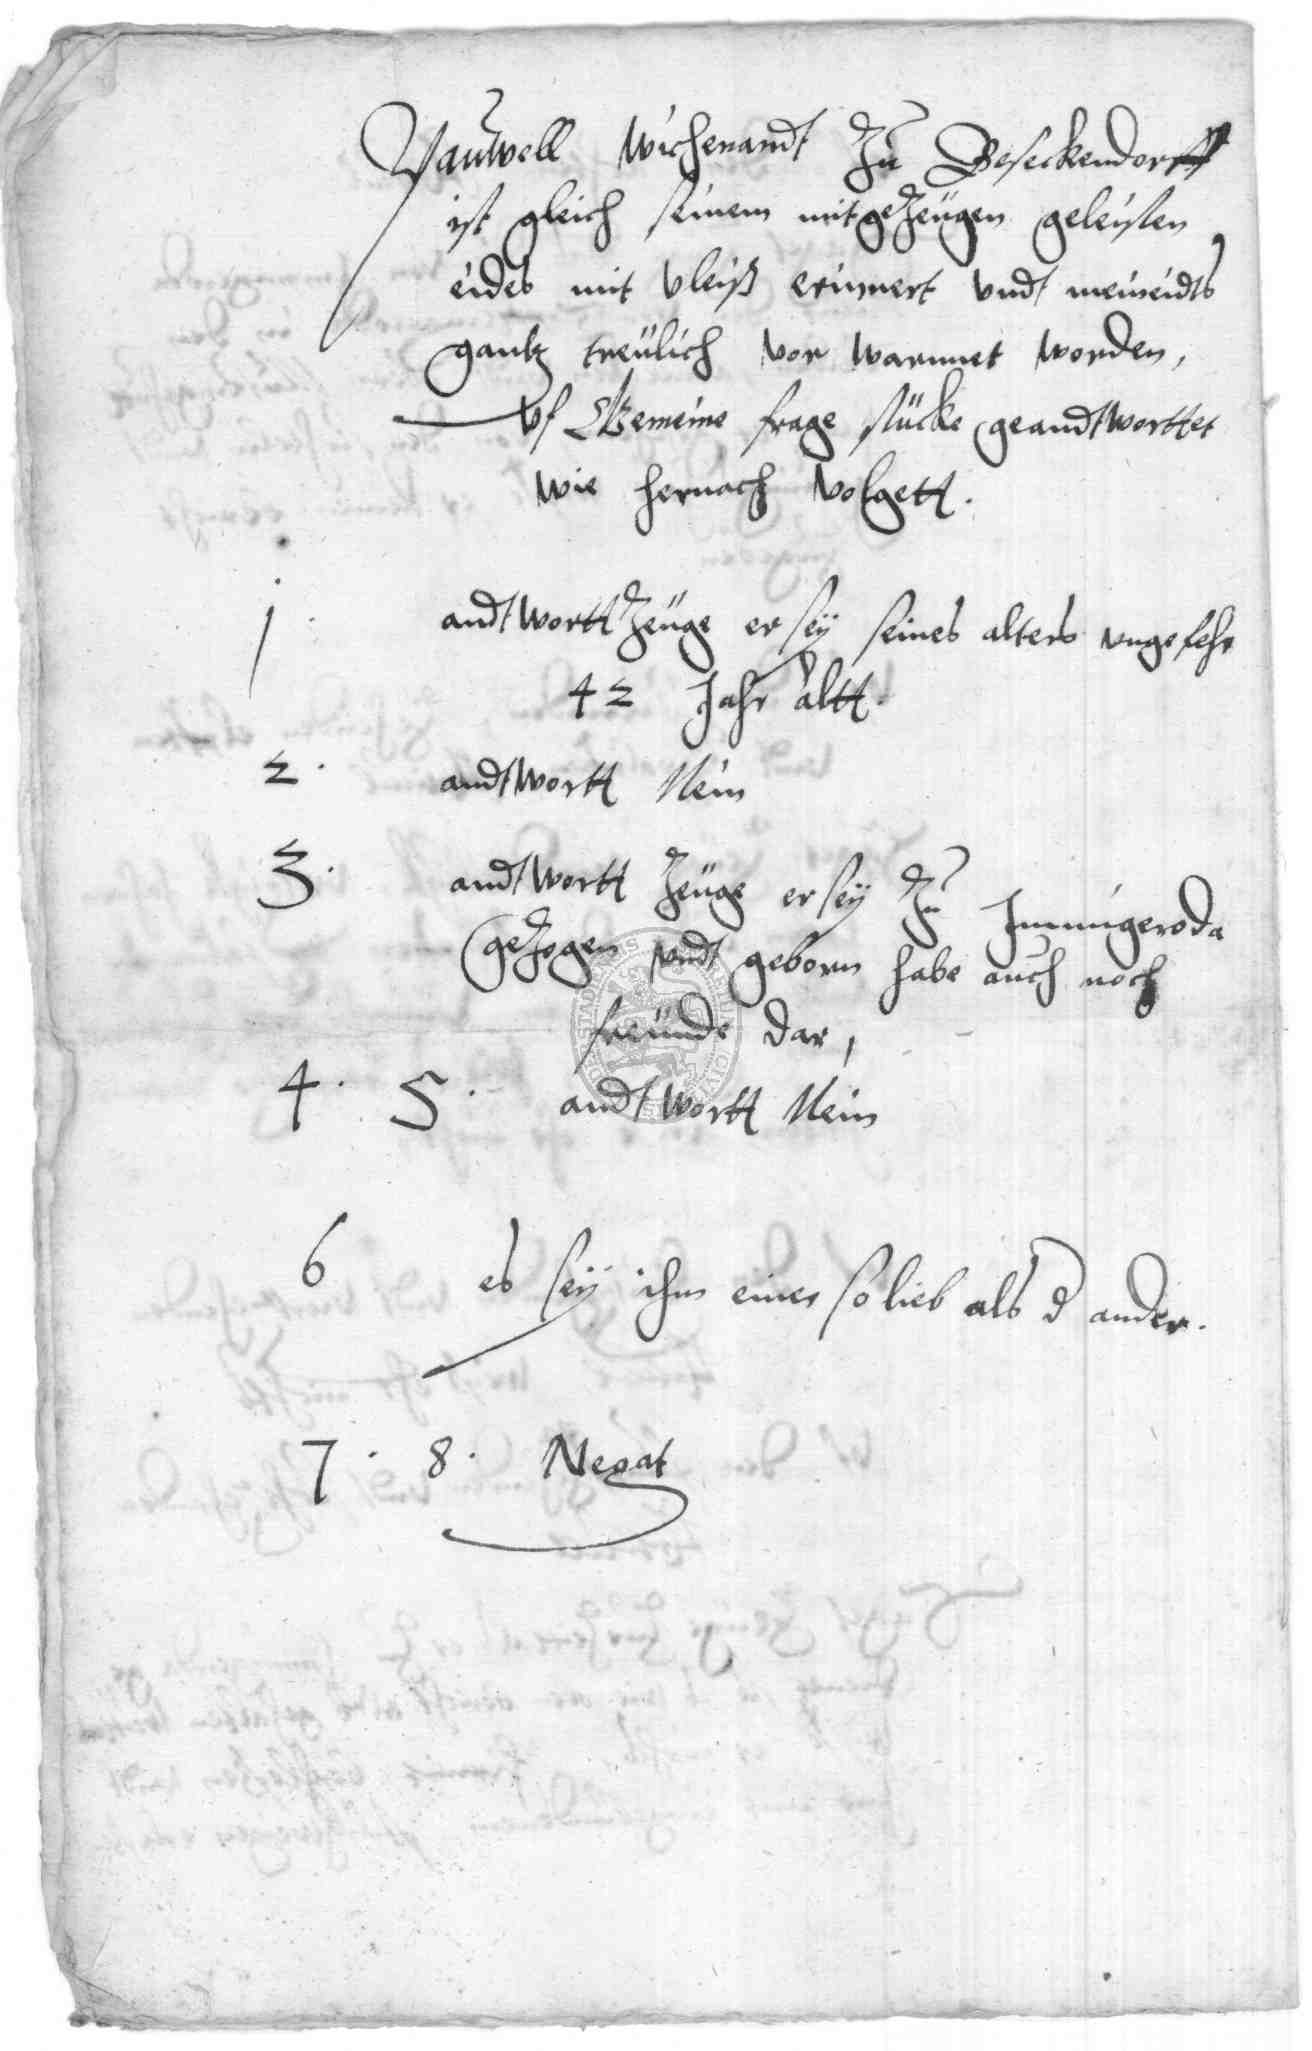 Pauwell Wichenandt Zu Beseckendorff
ist gleich seinem mitgezeugen geleisten
eides mit vleiß erinnert vndt meineidts
gantz treulich vor warnnet worden,
vf Gemeine frage stücke geandtworttet
wie hernach volgett.
1. andtwortt Zeuge er seÿ seines alters vngefehr
42 Jahr altt.
2. andtwortt Nein
3. andtwortt Zeuge er seÿ Zu Immigeroda
gezogen vndt geborn habe auch noch
freunde dar,
4. 5. andtwortt Nein
6 es seÿ ihm einer so lieb als d ander.
7. 8. Negat